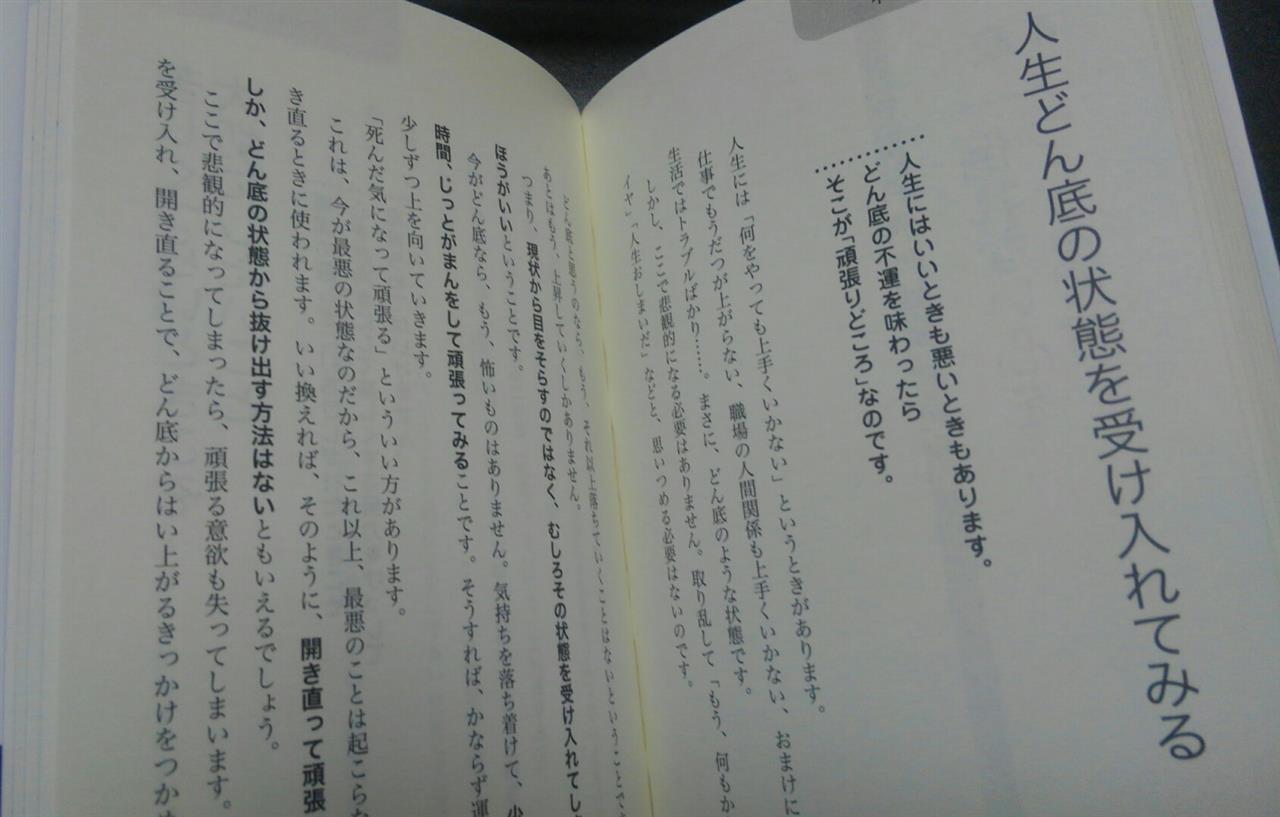 人生どん底の状態を受け入れてみる
人生にはいいときも悪いときもあります。
どん底の不運を味わったら
そこが「頑張りどころ」なのです。
人生には「何をやっても上手くいかない」というときがあります。
仕事でもうだつが上がらない、職場の人間関係も上手くいかない、おまけに
生活ではトラブルばかり……。まさに、どん底のような状態です。
しかし、ここで悲観的になる必要はありません。取り乱して「もう、何もか
イヤ」「人生おしまいだ」などと、思いつめる必要はないのです。
どん底と思うのなら、もう、それ以上落ちていくことはないということで
あとはもう、上昇していくしかありません。
つまり、現状から目をそらすのではなく、むしろその状態を受け入れてし
ほうがいいということです。
今がどん底なら、もう、怖いものはありません。気持ちを落ち着けて、少
時間、じっとがまんをして頑張ってみることです。そうすれば、かならず運
少しずつ上を向いていきます。
「死んだ気になって頑張る」といういい方があります。
これは、今が最悪の状態なのだから、これ以上、最悪のことは起こらな
き直るときに使われます。いい換えれば、そのように、開き直って頑張
しか、どん底の状態から抜け出す方法はないともいえるでしょう。
ここで悲観的になってしまったら、頑張る意欲も失ってしまいます。
を受け入れ、開き直ることで、どん底からはい上がるきっかけをつかめ